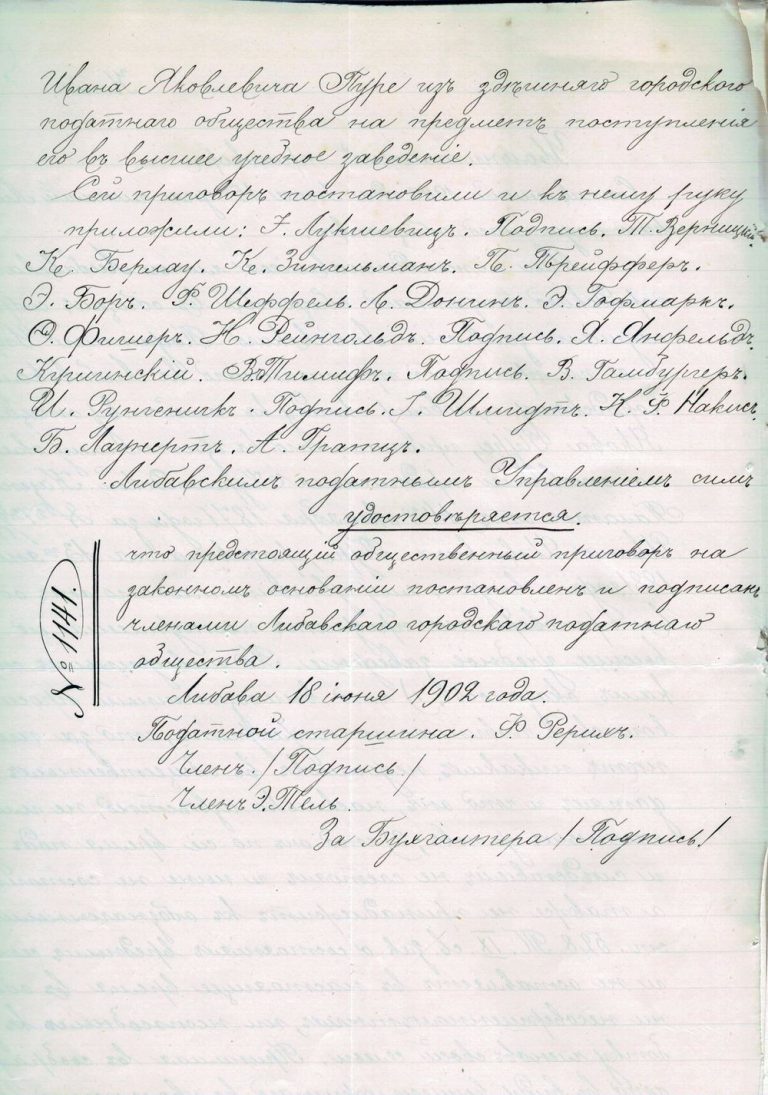 Ивана Яковлевича Пуре изъ здѣшняго городского
податнаго общества на предметъ поступленія
его въ высшее учебное заведеніе.
Сей приговоръ постановили и къ нему руку
приложили: Г. Лукшевицъ. Подпись. Т. Зерницкій.
К. Берлау. К. Зингельманъ. П. Пфейфферъ.
Э. Боръ. Ф. Шеффель. Л. Донинъ. Э. Гофмаркъ.
О. Фишеръ. Н. Рейнгольдъ. Подпись. Х. Янфельдъ.
Подпись. В. Гамбургеръ.
И. Подпись. I. Шмидтъ. К. Ф. Накисъ.
Б. Лаунертъ. А. Гратцъ.
Либавскимъ податнымъ Управленіемъ симъ
удостовѣряется.
что предстоящій общественный приговоръ на
законномъ основаніи постановленъ и подписанъ
членами Либавскаго городскаго податнаго
общества.
Либава 18 іюня 1902 года.
Податной старшина. Ф. Рерихъ.
Членъ. /Подпись/
Членъ Э. Тель.
За Бухгалтера /Подпись/
№ 1141.